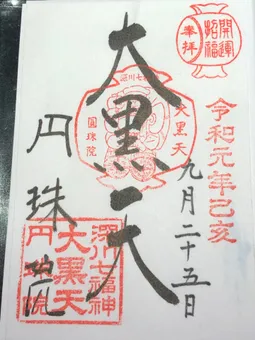 開運
招福
奉拝
令和元年己亥
九月二十五日
深川七福神
大黒天
円珠院
大黒天
圓珠院
深川七福神
大黒天
円珠院